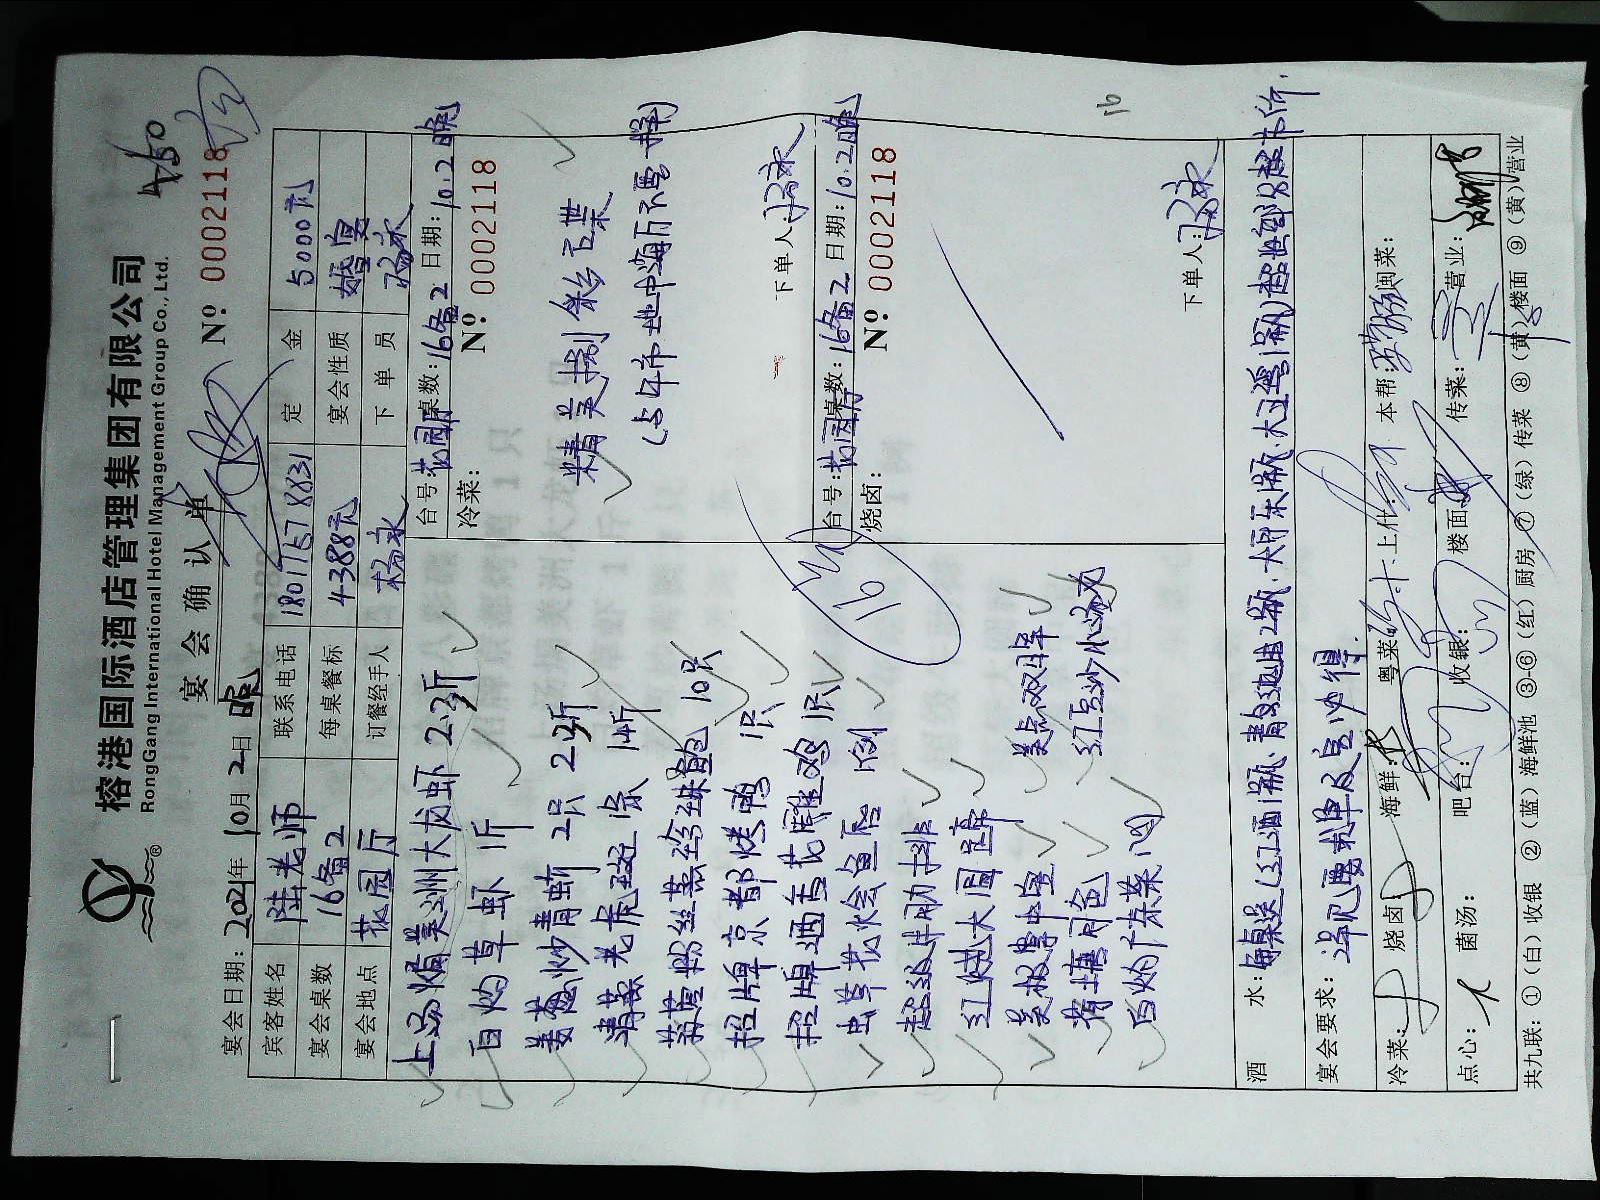 榕港国际酒店管理集团有限公司
RongGang International Hotel Management Group Co., Ltd.
宴会确认单
№: 0002118
宴会日期: 2021年 10月 2日 晚
宾客姓名 陆老师 联系电话 18017678831 定金 5000元
宴会桌数 16备2 每桌餐标 4388元 宴会性质 婚宴
宴会地点 花园厅 订餐经手人 杨永 下单员 杨永
上汤焗美洲大龙虾 2.3斤
白灼草虾 1斤
姜葱炒青蟹 2只 2.3斤
清蒸老虎斑 1条 1.4斤
蒜蓉粉丝蒸 鲍 10只
招牌京都烤鸭 1只
招牌酒香花雕鸡 1只
虫草花烩鱼唇 1例
超级牛肋排
红烧大圆蹄
美极基中宝
白灼广菜心
美点双辉
红豆沙小汤圆
16
台号: 花园厅 桌数: 16备2 日期: 10.2晚
冷菜:
№: 0002118
精美捌彩豆菜
下单人: 杨永
台号: 花园厅 桌数: 16备2 日期: 10.2晚
烧卤:
№: 0002118
下单人: 杨永
16
酒水: 每桌送(红酒1瓶、青 2瓶、大 1瓶、大 1瓶)超出部分超市价.
宴会要求:
冷菜: 烧卤: 海鲜: 粤菜: 上什: 本帮: 闽菜:
点心: 菌汤: 吧台: 收银: 楼面: 传菜: 营业:
共九联: ①(白)收银 ②(蓝)海鲜池 ③-⑥(红)厨房 ⑦(绿)传菜 ⑧(黄)楼面 ⑨(黄)营业